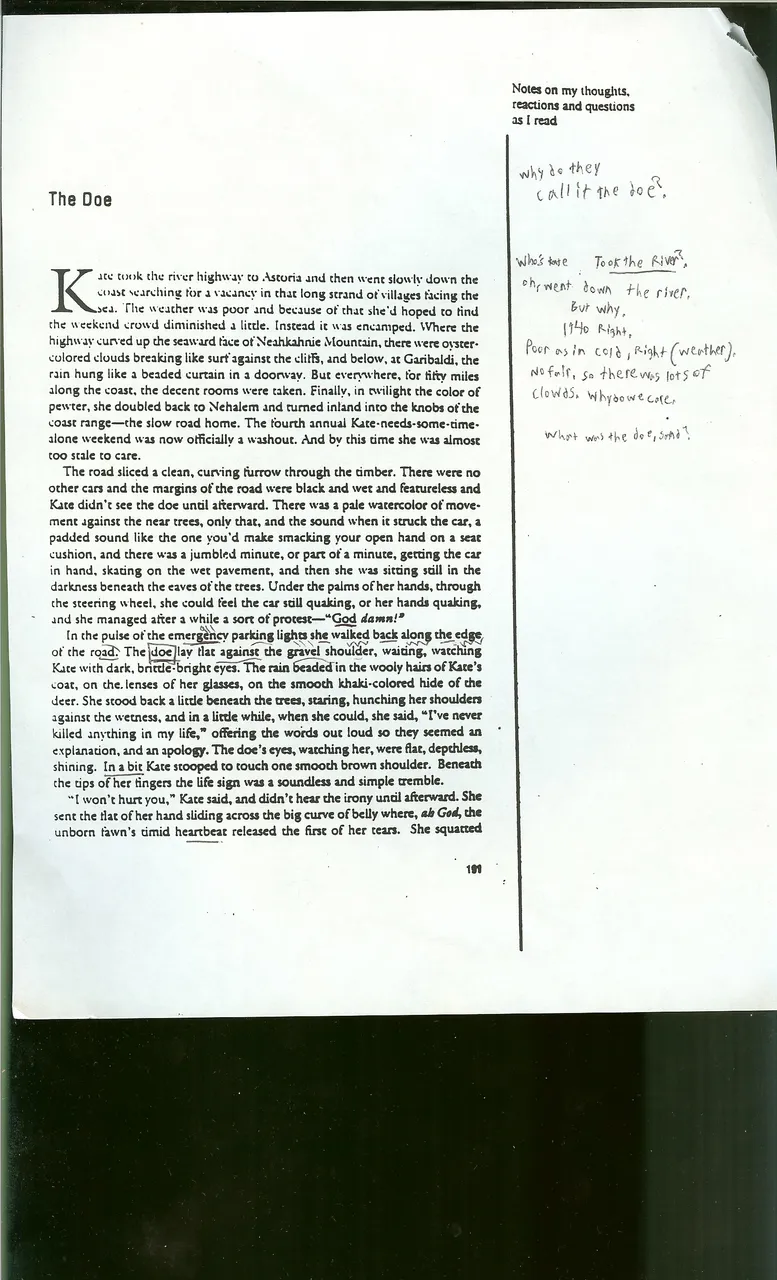 Notes on my thoughts,
reactions and questions
as I read
why do they
call it the doe?.
The Doe
Kate took the river highway to Astoria and then went slowly down the
coast searching for a vacancy in that long strand of villages facing the
sea. The weather was poor and because of that she'd hoped to find
the weekend crowd diminished a little. Instead it was encamped. Where the
highway curved up the seaward face of Neahkahnie Mountain, there were oyster-
colored clouds breaking like surf against the cliffs, and below, at Garibaldi, the
rain hung like a beaded curtain in a doorway. But everywhere, for fifty miles
along the coast, the decent rooms were taken. Finally, in twilight the color of
pewter, she doubled back to Nehalem and turned inland into the knobs of the
coast range—the slow road home. The fourth annual Kate-needs-some-time-
alone weekend was now officially a washout. And by this time she was almost
too stale to care.
The road sliced a clean, curving furrow through the timber. There were no
other cars and the margins of the road were black and wet and featureless and
Kate didn't see the doe until afterward. There was a pale watercolor of move-
ment against the near trees, only that, and the sound when it struck the car, a
padded sound like the one you'd make smacking your open hand on a seat
cushion, and there was a jumbled minute, or part of a minute, getting the car
in hand, skating on the wet pavement, and then she was sitting still in the
darkness beneath the eaves of the trees. Under the palms of her hands, through
the steering wheel, she could feel the car still quaking, or her hands quaking,
and she managed after a while a sort of protest—"God damn!"
In the pulse of the emergency parking lights she walked back along the edge
of the road. The doe lay flat against the gravel shoulder, waiting, watching
Kate with dark, brittle-bright eyes. The rain beaded in the wooly hairs of Kate's
coat, on the lenses of her glasses, on the smooth khaki-colored hide of the
deer. She stood back a little beneath the trees, staring, hunching her shoulders
against the wetness, and in a little while, when she could, she said, "I've never
killed anything in my life," offering the words out loud so they seemed an
explanation, and an apology. The doe's eyes, watching her, were flat, depthless,
shining. In a bit Kate stooped to touch one smooth brown shoulder. Beneath
the tips of her fingers the life sign was a soundless and simple tremble.
"I won't hurt you," Kate said, and didn't hear the irony until afterward. She
sent the flat of her hand sliding across the big curve of belly where, ah God, the
unborn fawn's timid heartbeat released the first of her tears. She squatted
191
Who's Took the River?.
oh, went down the river.
But why,
Right,
Poor as in cold, Right (weather).
No fair, so there was lots of
clowds. Why do we care.
What was the doe,